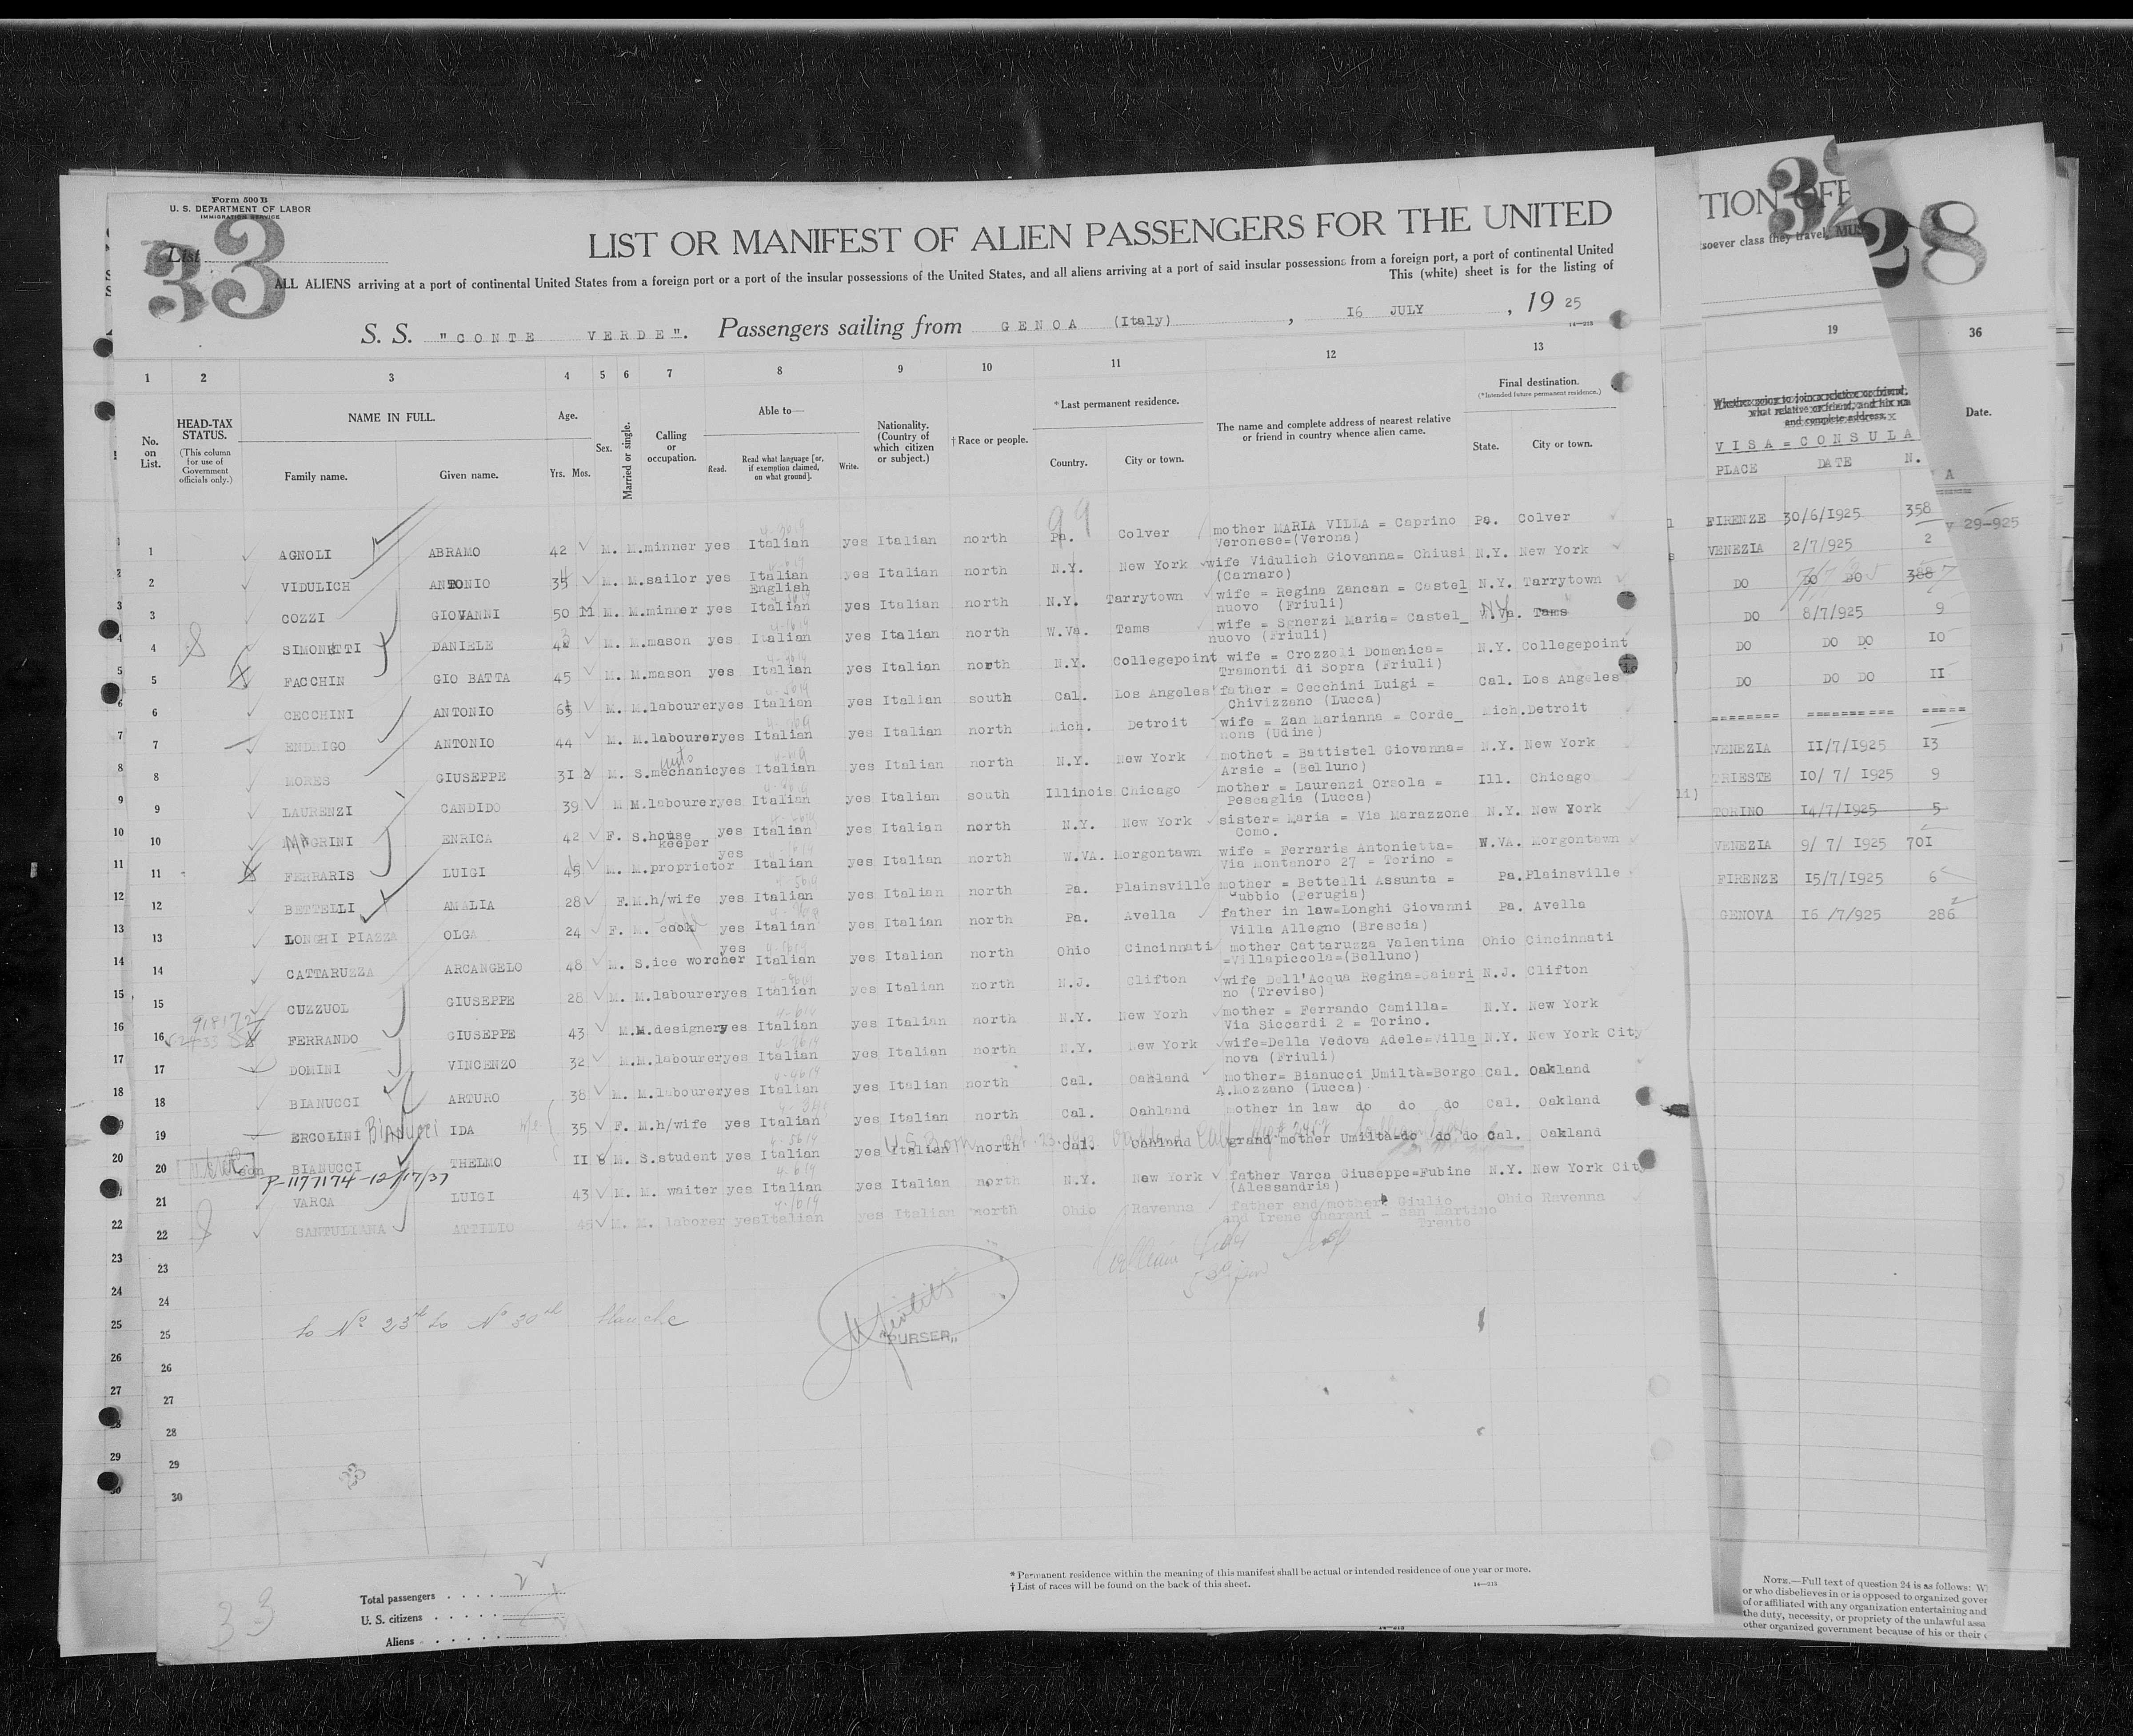 Form 500 B
U. S. DEPARTMENT OF LABOR
IMMIGRATION SERVICE
List
33
LIST OR MANIFEST OF ALIEN PASSENGERS FOR THE UNITED
ALL ALIENS arriving at a port of continental United States from a foreign port or a port of the insular possessions of the United States, and all aliens arriving at a port of said insular possessions from a foreign port, a port of continental United
This (white) sheet is for the listing of
S. S. "CONTE VERDE". Passengers sailing from GENOA (Italy), I6 JULY, 19 25
14—213
1 2 3 4 5 6 7 8 9 10 11 12 13
No. on List.
HEAD-TAX STATUS.
(This column for use of Government officials only.)
NAME IN FULL.
Family name. Given name.
Age.
Yrs. Mos.
Sex.
Married or single.
Calling or occupation.
Able to—
Read. Read what language [or, if exemption claimed, on what ground]. Write.
Nationality. (Country of which citizen or subject.)
† Race or people.
* Last permanent residence.
Country. City or town.
The name and complete address of nearest relative or friend in country whence alien came.
Final destination.
(*Intended future permanent residence.)
State. City or town.
99
1 AGNOLI ABRAMO 42 M. M. minner yes Italian yes Italian north Pa. Colver mother MARIA VILLA = Caprino Pa. Colver
Veronese=(Verona)
2 VIDULICH ANTONIO M. M. sailor yes Italian yes Italian north N.Y. New York wife Vidulich Giovanna= Chiusi N.Y. New York
English (Carnaro)
3 COZZI GIOVANNI 50 M. M. minner yes Italian yes Italian north N.Y. Tarrytown wife = Regina Zancan = Castel_ N.Y. Tarrytown
nuovo (Friuli)
4 SIMONETTI DANIELE M. M. mason yes Italian yes Italian north W.Va. Tams wife = Sgnerzi Maria= Castel_ Tams
nuovo (Friuli)
5 FACCHIN GIO BATTA 45 M. M. mason yes Italian yes Italian north N.Y. Collegepoint wife = Crozzoli Domenica= N.Y. Collegepoint
Tramonti di Sopra (Friuli)
6 CECCHINI ANTONIO M. M. labourer yes Italian yes Italian south Cal. Los Angeles father = Cecchini Luigi = Cal. Los Angeles
Chivizzano (Lucca)
7 ENDRIGO ANTONIO 44 M. M. labourer yes Italian yes Italian north Mich. Detroit wife = Zan Marianna = Corde_ Mich. Detroit
nons (Udine)
auto
8 MORES GIUSEPPE 3I 2 M. S. mechanic yes Italian yes Italian north N.Y. New York mothet = Battistel Giovanna= N.Y. New York
Arsie = (Belluno)
9 LAURENZI CANDIDO 39 M M. labourer yes Italian yes Italian south Illinois Chicago mother = Laurenzi Orsola = Ill. Chicago
Pescaglia (Lucca)
10 MAGRINI ENRICA 42 F. S. house keeper yes Italian yes Italian north N.Y. New York sister= Maria = Via Marazzone N.Y. New York
Como.
11 FERRARIS LUIGI M. M. proprietor yes Italian yes Italian north W.VA. Morgontawn wife = Ferraris Antonietta= W.VA. Morgontawn
Via Montenoro 27 = Torino =
12 BETTELLI AMALIA 28 F. M. h/wife yes Italian yes Italian north Pa. Plainsville mother = Bettelli Assunta = Pa. Plainsville
Gubbio (Perugia)
13 LONGHI PIAZZA OLGA 24 F. M. cook yes Italian yes Italian north Pa. Avella father in law=Longhi Giovanni Pa. Avella
Villa Allegno (Brescia)
14 CATTARUZZA ARCANGELO 48 M. S. ice worcher yes Italian yes Italian north Ohio Cincinnati mother Cattaruzza Valentina Ohio Cincinnati
=Villapiccola=(Belluno)
15 CUZZUOL GIUSEPPE 28 M. M. labourer yes Italian yes Italian north N.J. Clifton wife Dell'Acqua Regina=Gaiari_ N.J. Clifton
no (Treviso)
16 FERRANDO GIUSEPPE 43 M. M. designer yes Italian yes Italian north N.Y. New Yorh mother = Ferrando Camilla= N.Y. New York
Via Siccardi 2 = Torino.
17 DOMINI VINCENZO 32 M. M. labourer yes Italian yes Italian north N.Y. New York wife=Della Vedova Adele=Villa_ N.Y. New York City
nova (Friuli)
18 BIANUCCI ARTURO 38 M. M. labourer yes Italian yes Italian north Cal. Oahland mother= Bianucci Umiltà=Borgo Cal. Oakland
A.Mozzano (Lucca)
19 ERCOLINI Bianucci IDA 35 F. M. h/wife yes Italian yes Italian north Cal. Oahland mother in law do do do Cal. Oakland
U.S. Born
20 BIANUCCI THELMO II 8 M. S. student yes Italian yes Italian north Cal. Oahland grand mother Umiltà=do do do Cal. Oakland
P-1177174-12/17/37
21 VARCA LUIGI 43 M. M. waiter yes Italian yes Italian north N.Y. New York father Varca Giuseppe=Fubine N.Y. New York City
(Alessandria)
22 SANTULIANA ATTILIO 45 M. M. laborer yes Italian yes Italian north Ohio Ravenna father and/mother Giulio Ohio Ravenna
and Irene Gharani — San Martino
Trento
23
24
25
26
27
28
29
30
to No 23rd to No 30th blanche
PURSER
Total passengers
U. S. citizens
Aliens
33
* Permanent residence within the meaning of this manifest shall be actual or intended residence of one year or more.
† List of races will be found on the back of this sheet.
14—213
TION OFF
32
28
soever class they travel, MUS
19 36
Whether going to join a relative or friend,
what relative or friend, and his na
and complete address.
VISA=CONSULA
PLACE DATE N.
Date.
FIRENZE 30/6/I925 358
29-925
VENEZIA 2/7/925 2
DO DO DO 388
DO 8/7/925 9
DO DO DO IO
DO DO DO II
======== ========== =====
VENEZIA II/7/I925 I3
TRIESTE IO/ 7/ I925 9
TORINO I4/7/I925 5
VENEZIA 9/ 7/ I925 70I
FIRENZE I5/7/I925 6
GENOVA I6 /7/925 286
NOTE.—Full text of question 24 is as follows: W
or who disbelieves in or is opposed to organized gover
of or affiliated with any organization entertaining and
the duty, necessity, or propriety of the unlawful assa
other organized government because of his or their